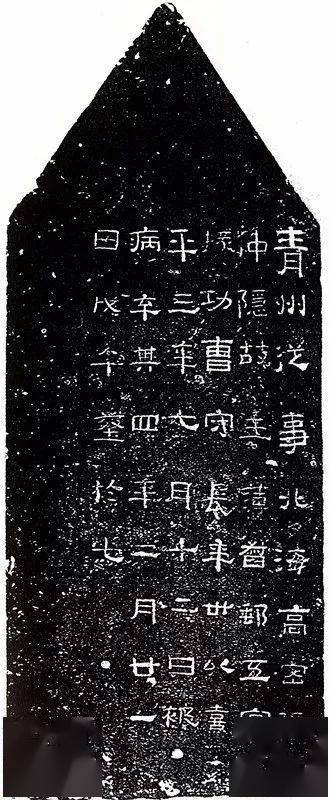 青州從事北海高密
仲隱故主簿督郵五官
掾功曹守長年卅以熹
平三年七月十二日被
病卒其四年二月廿一
日戊午塟於此